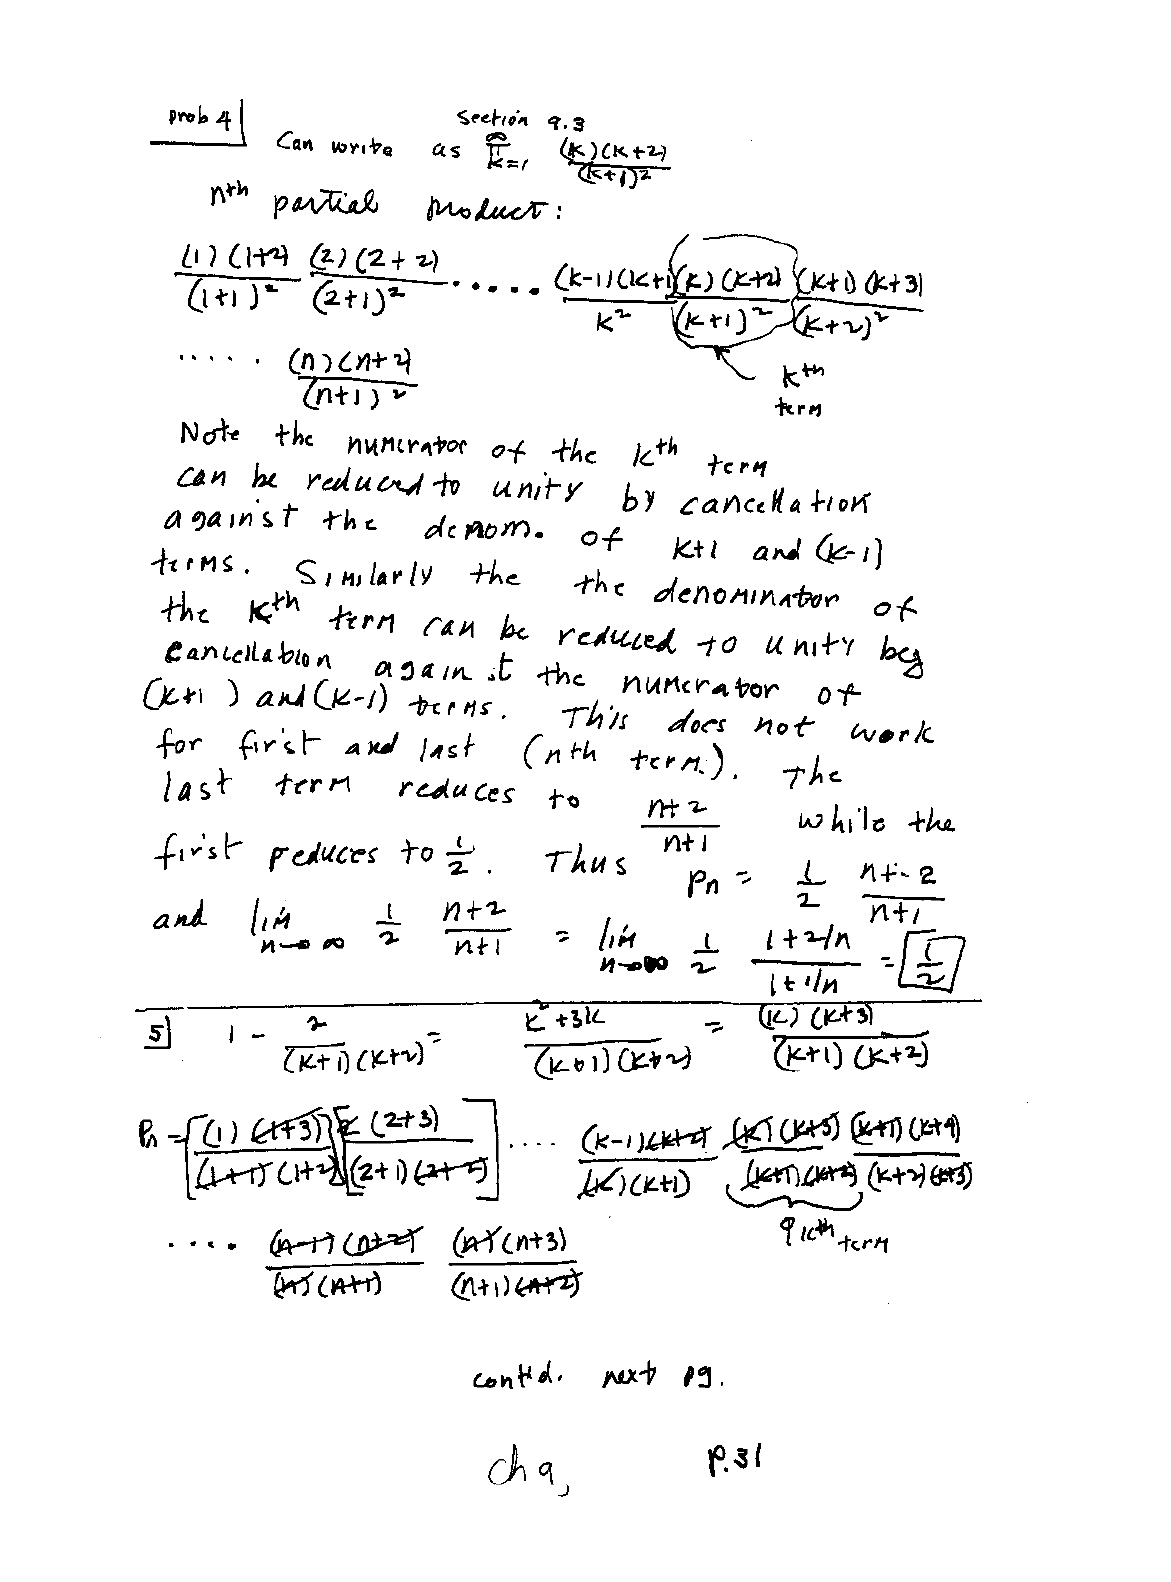 prob 4
Section 9.3
Can write as ∞ Π k=1 (k)(k+2) / (k+1)²
nth partial product:
(1)(1+2) / (1+1)² (2)(2+2) / (2+1)² ..... (k-1)(k+1) / k² (k)(k+2) / (k+1)² (k+1)(k+3) / (k+2)²
..... (n)(n+2) / (n+1)²
kth term
Note the numerator of the kth term
can be reduced to unity by cancellation
against the denom. of k+1 and (k-1)
terms. Similarly the the denominator of
the kth term can be reduced to unity by
cancellation against the numerator of
(k+1) and (k-1) terms. This does not work
for first and last (nth term). The
last term reduces to n+2 / n+1 while the
first reduces to 1/2. Thus Pn = 1/2 n+2 / n+1
and lim n→∞ 1/2 n+2 / n+1 = lim n→∞ 1/2 1+2/n / 1+1/n = 1/2
5] 1 - 2 / (k+1)(k+2) = k²+3k / (k+1)(k+2) = (k)(k+3) / (k+1)(k+2)
Pn = [(1)(1+3) / (1+1)(1+2)] [2(2+3) / (2+1)(2+2)] .... (k-1)(k+2) / (k)(k+1) (k)(k+3) / (k+1)(k+2) (k+1)(k+4) / (k+2)(k+3)
kth term
.... (n-1)(n+2) / (n)(n+1) (n)(n+3) / (n+1)(n+2)
cont'd. next pg.
ch 9, p.31